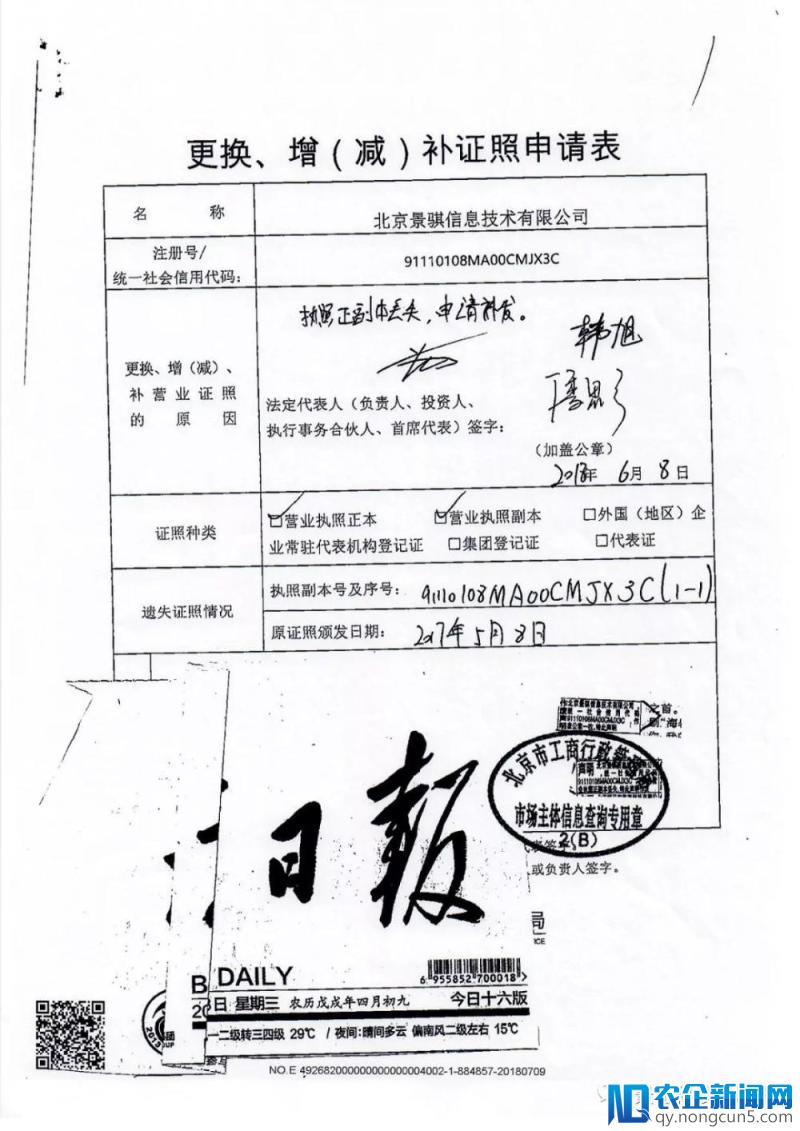 更换、增（减）补证照申请表
名 称
北京景骐信息技术有限公司
注册号/
统一社会信用代码：
91110108MA00CMJX3C
更换、增（减）、
补营业证照
的原因
执照正副本丢失，申请补发。
韩旭
法定代表人（负责人、投资人、
执行事务合伙人、首席代表）签字：
（加盖公章）
2018年 6月 8日
证照种类
□营业执照正本 □营业执照副本 □外国（地区）企
业常驻代表机构登记证 □集团登记证 □代表证
遗失证照情况
执照副本号及序号：91110108MA00CMJX3C(1-1)
原证照颁发日期：2017年5月8日
之首。
北京市工商行政管理
声明
市场主体信息查询专用章
2(B)
或负责人签字。
日报
局
ICE
B DAILY
6 955852 700018
20 日 星期三 农历戊戌年四月初九 今日十六版
一二级转三四级 29℃ / 夜间:晴间多云 偏南风二级左右 15℃
NO.E 492682000000000000004002-1-884857-20180709
农企新闻网
qy.nongcun5.com